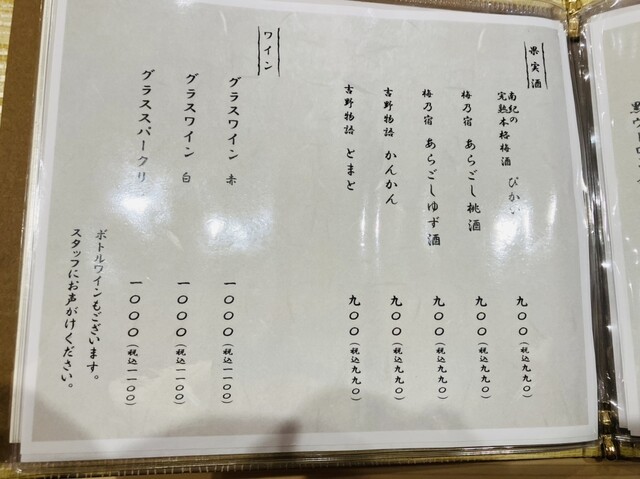 果実酒
南紀の
完熟本格梅酒
九〇〇(税込九九〇)
梅乃宿 あらごし桃酒
九〇〇(税込九九〇)
梅乃宿 あらごしゆず酒
九〇〇(税込九九〇)
吉野物語 かんかん
九〇〇(税込九九〇)
吉野物語 とまと
九〇〇(税込九九〇)
ワイン
グラスワイン 赤
一〇〇〇(税込一一〇〇)
グラスワイン 白
一〇〇〇(税込一一〇〇)
グラススパークリ
一〇〇〇(税込一一〇〇)
ボトルワインもございます。
スタッフにお声がけください。